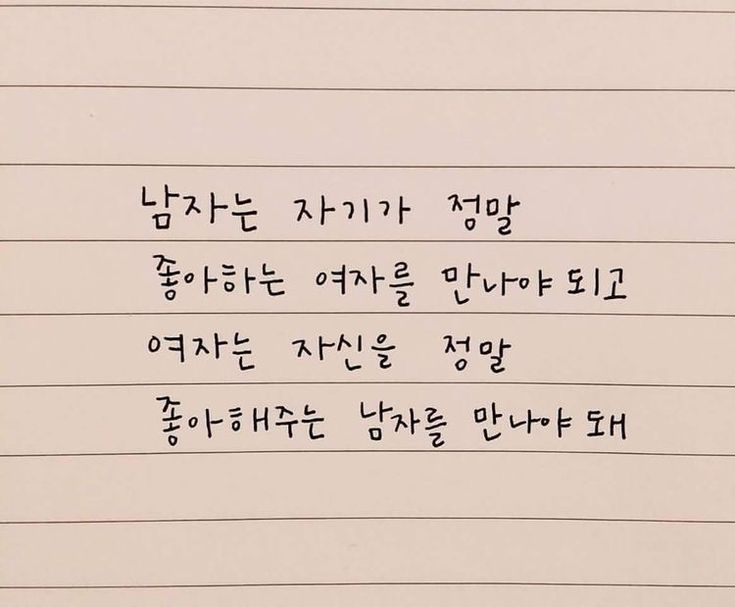 남자는 자기가 정말
좋아하는 여자를 만나야 되고
여자는 자신을 정말
좋아해주는 남자를 만나야 돼